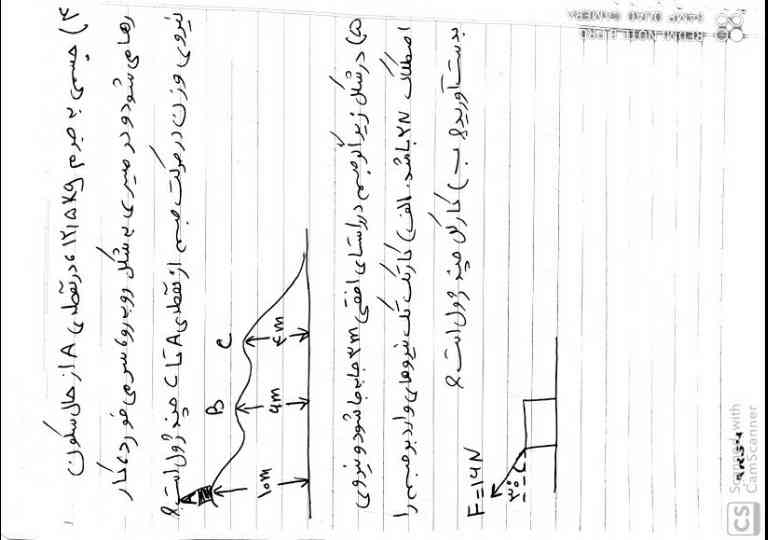 ۴) جسمی به جرم ۱۲٫۵kg در نقطه‌ی A از حال سکون
رها می شود و در مسیری به شکل روبه رو سر می خورد. کار
نیروی وزن در حرکت جسم از نقطه‌ی A تا C چند ژول است؟
A
B
C
۱۰m
۶m
۴m
۵) در شکل زیر اگر جسم در راستای افقی ۳m جابه جا شود و نیروی
اصطکاک ۲N باشد. الف) کار تک تک نیروهای وارد بر جسم را
بدست آورید؟ ب) کار کل چند ژول است؟
F=۱۶N
۳۰°
REDMI NOTE 8 PRO
64MP QUAD CAMERA
CS
Scanned with
CamScanner